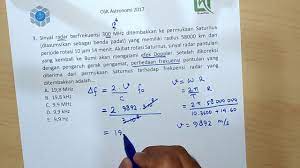 OSK Astronomi 2017
3. Sinyal radar berfrekuensi 300 MHz ditembakkan ke permukaan Saturnus
(diasumsikan sebagai benda padat) yang memiliki radius 58000 km dan
periode rotasi 10 jam 14 menit. Akibat rotasi Saturnus, sinyal radar pantulan
yang kembali ke Bumi akan mengalami efek Doppler. Setelah dikoreksi
dengan pengaruh gerak pengamat, perbedaan frekuensi pantulan yang
diterima dari permukaan Saturnus terhadap frekuensi radar yang
ditembakkan adalah
A. 19,8 MHz
B. 19,8 kHz
C. 9,9 MHz
D. 9,9 kHz
E. 9,9 Hz
Δf = 2 . v
C fo
= 2 9892
= 19,
v = ω R
= 2π R
T
= 2π 58 000 000
10.3600 + 14.60
v = 9892 m/s